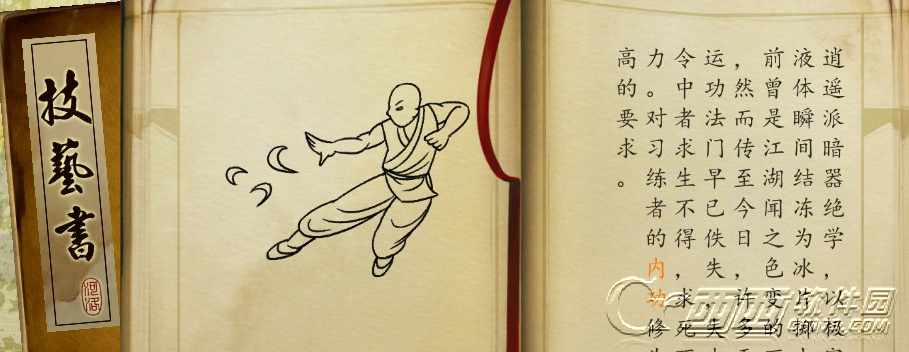 技藝書
河洛
逍遥派暗器绝学，以极
液体瞬间结冻为冰片掷
前曾是江湖闻之色变的
，然而传至今日，许多
运功法门早已佚失，失
令中者求生不得，求死
力。对习练者的内功修
高的要求。
西西软件园